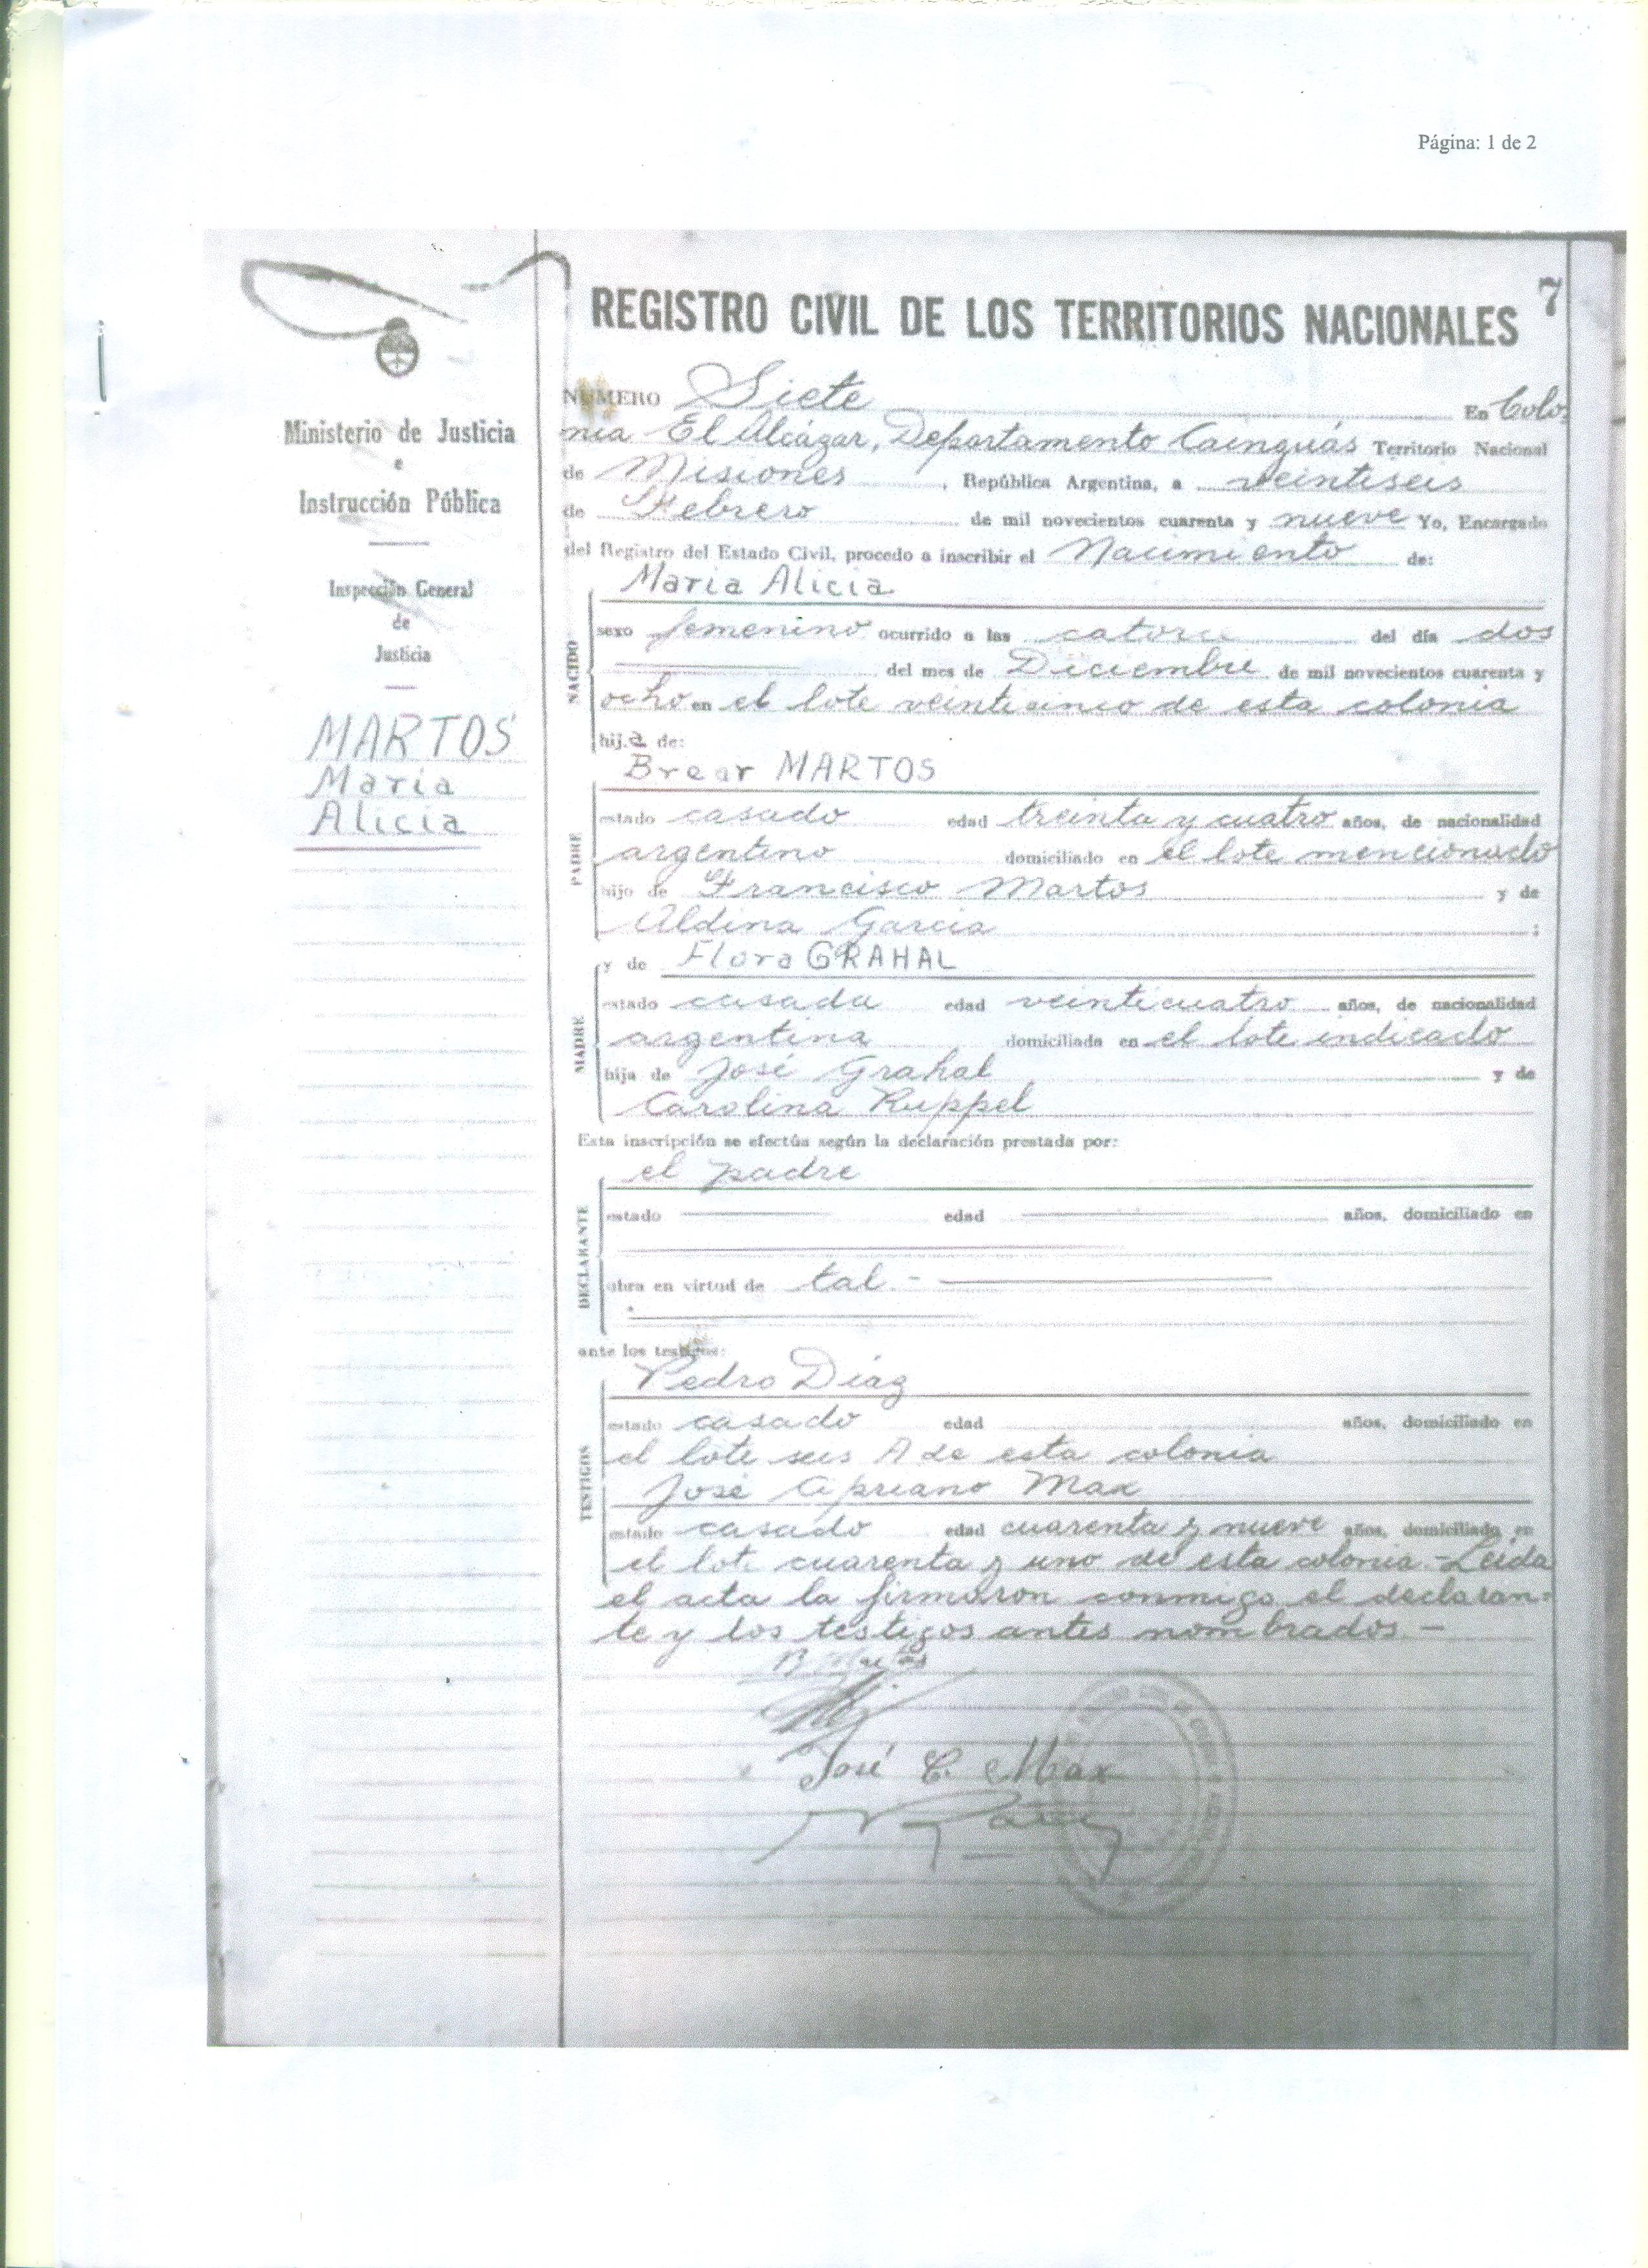 Página: 1 de 2
7
REGISTRO CIVIL DE LOS TERRITORIOS NACIONALES
Ministerio de Justicia
e
Instrucción Pública
Inspección General
de
Justicia
MARTOS
Maria
Alicia
NUMERO Siete En Colo-
nia El Alcázar, Departamento Cainguás Territorio Nacional
de Misiones, República Argentina, a veintiseis
de Febrero de mil novecientos cuarenta y nueve Yo, Encargado
del Registro del Estado Civil, procedo a inscribir el Nacimiento de:
Maria Alicia
NACIDO
sexo femenino ocurrido a las catorce del día dos
del mes de Diciembre de mil novecientos cuarenta y
ocho en el lote veinticinco de esta colonia
hija de:
Brear MARTOS
PADRE
estado casado edad treinta y cuatro años, de nacionalidad
argentino domiciliado en el lote mencionado
hijo de Francisco Martos y de
Aldina Garcia ;
y de Flora GRAHAL
MADRE
estado casada edad veinticuatro años, de nacionalidad
argentina domiciliada en el lote indicado
hija de José Grahal y de
Carolina Ruppel
Esta inscripción se efectúa según la declaración prestada por:
el padre
DECLARANTE
estado edad años, domiciliado en
obra en virtud de tal.-
ante los testigos:
Pedro Díaz
TESTIGOS
estado casado edad años, domiciliado en
el lote seis A de esta colonia
José Cipriano Max
estado casado edad cuarenta y nueve años, domiciliado en
el lote cuarenta y uno de esta colonia.- Leida
el acta la firmaron conmigo el declaran-
te y los testigos antes nombrados.-
José C. Max